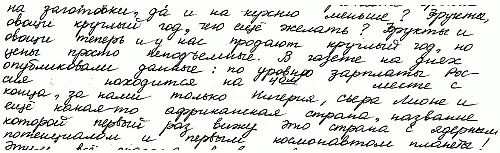 на заготовки, да и на кухню меньше? Фрукты,
овощи круглый год, чего ещё желать? Фрукты и
овощи теперь и у нас продают круглый год, но
цены просто неподъемные. В газете на днях
опубликовали данные: по уровню зарплаты Рос-
сия находится на месте с
конца, за нами только Нигерия, Сьера Лионе и
ещё какая-то африканская страна, название
которой первый раз вижу это страна с ядерным
потенциалом и первым космонавтом планеты!